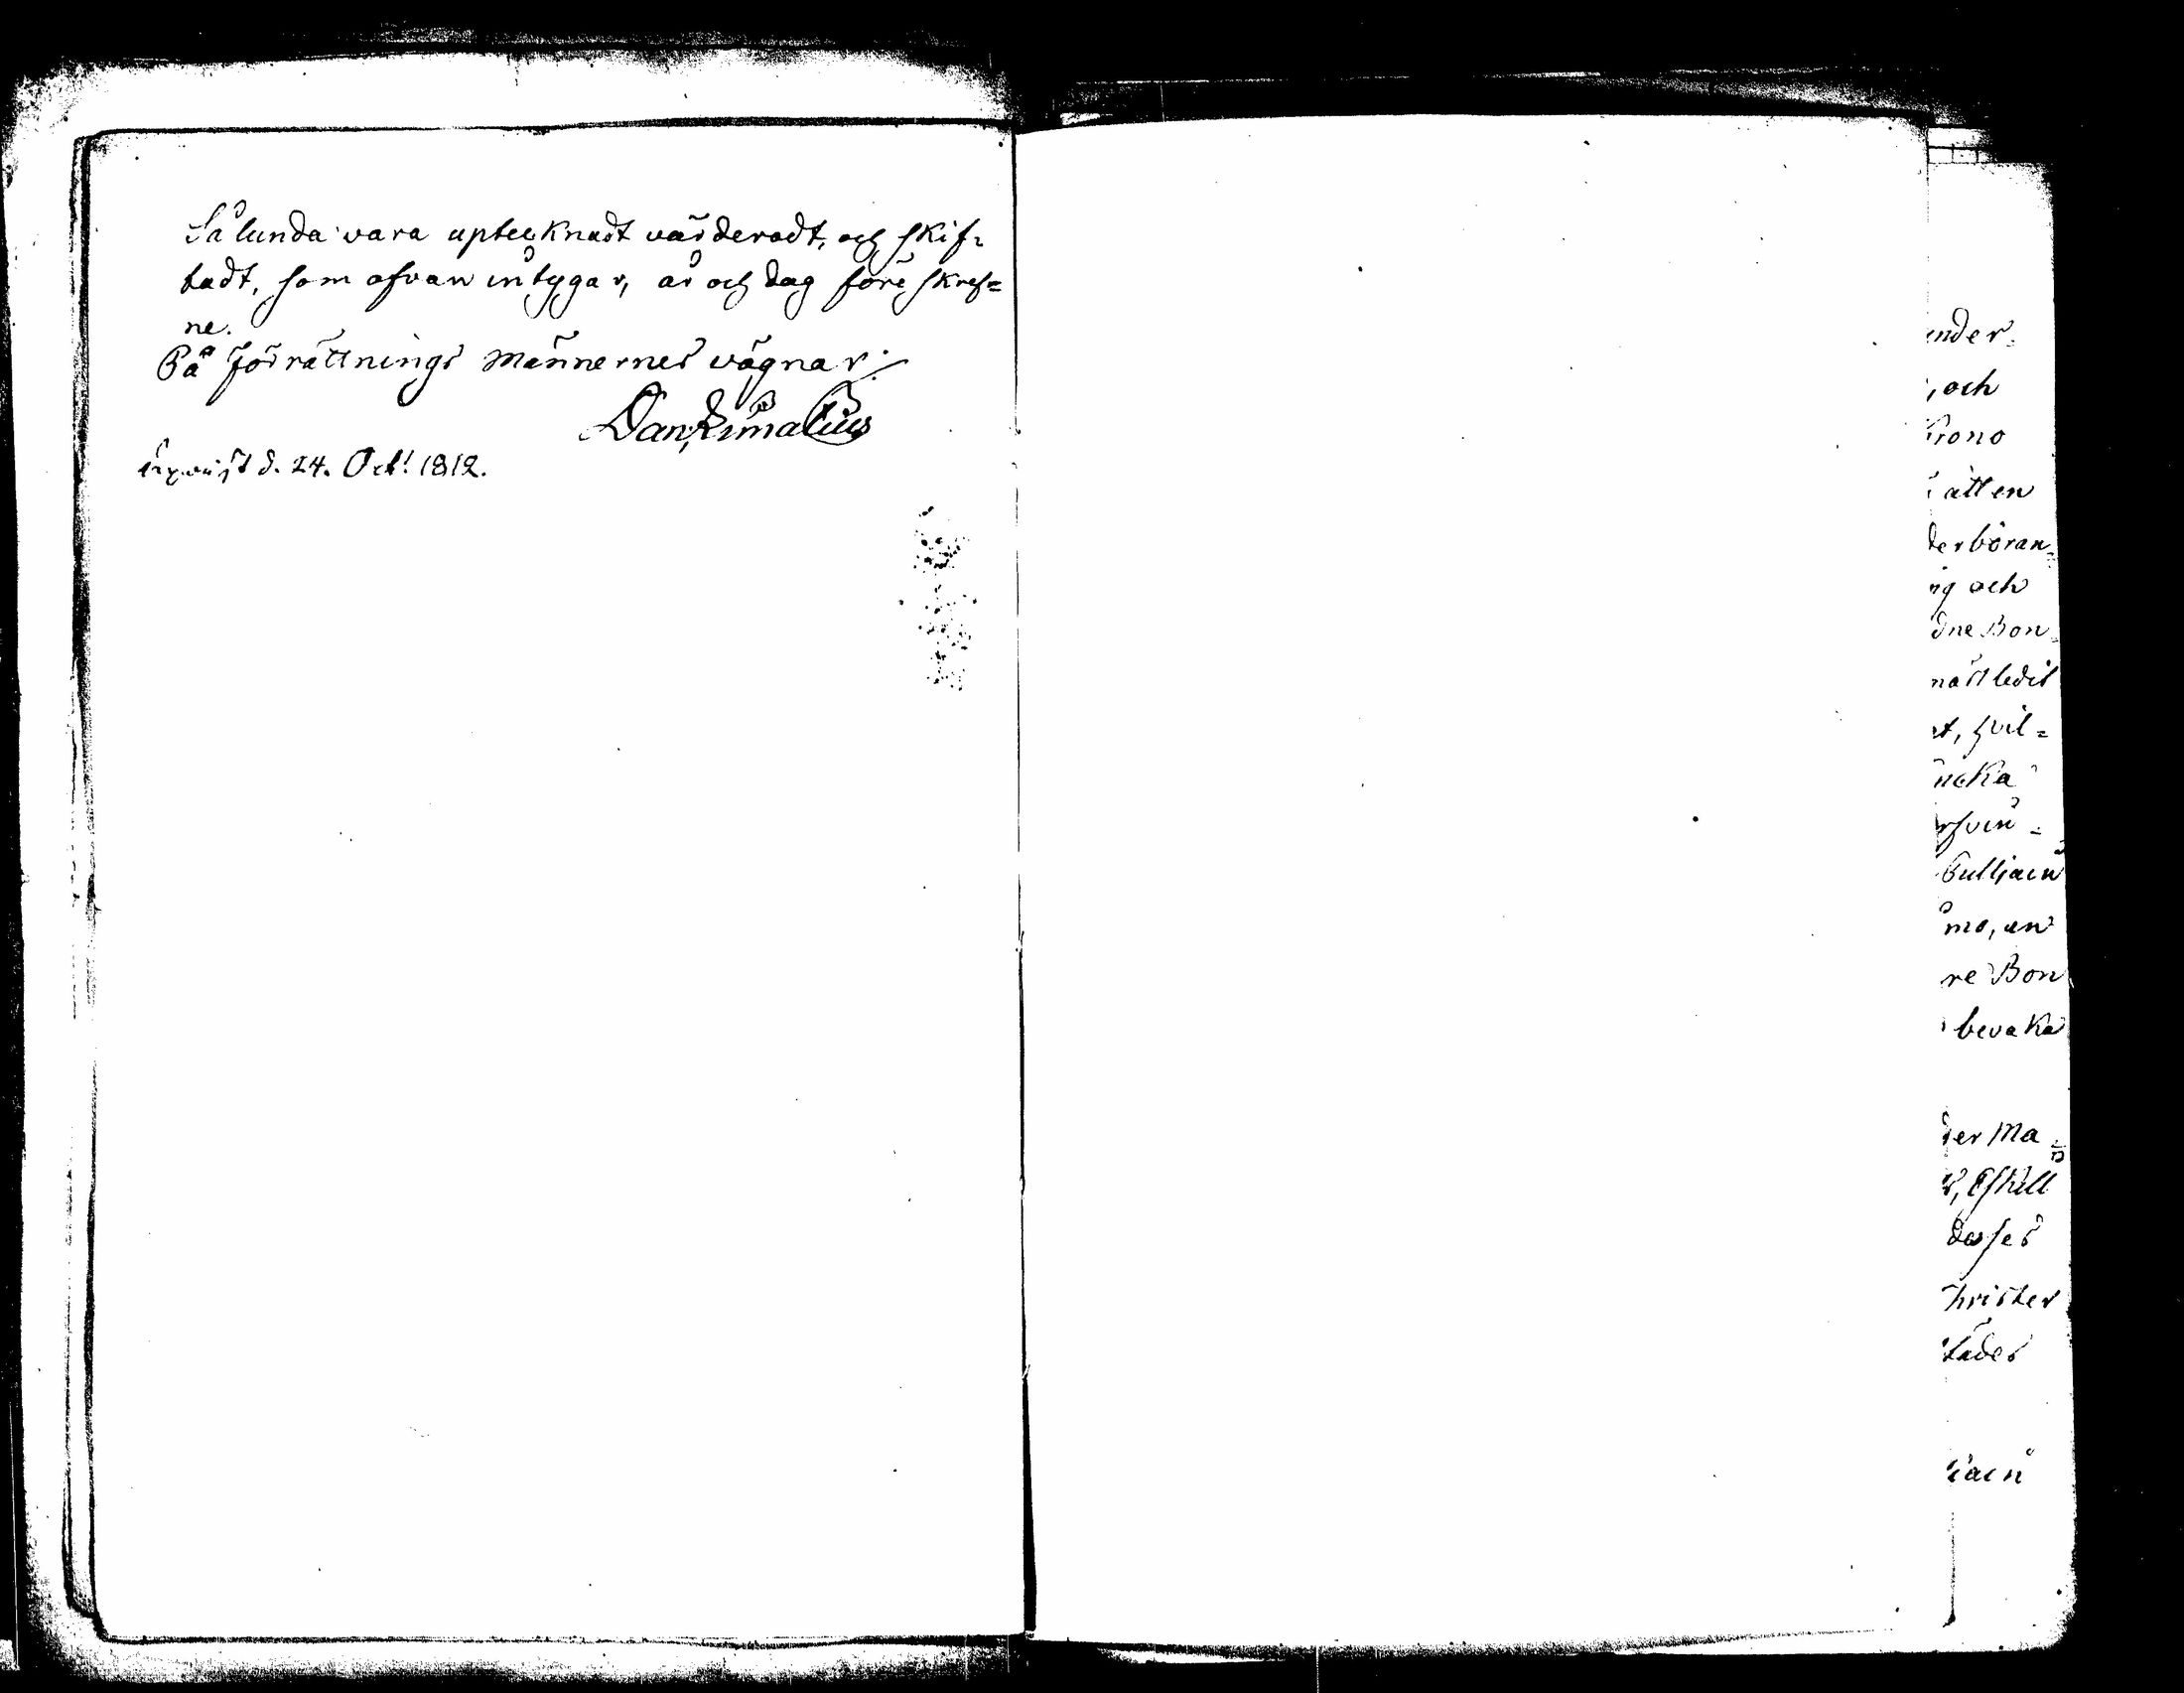 Sålunda vara uptecknadt värderadt, och skif=
tadt, som ofvan intygar, år och dag föreskref=
ne.
På förrättnings Männernes vägnar
Dan. Rimalius
d. 24. Oct! 1812.
nder
, och
rono
ätten
derböran=
ng och
dne Bon
nästledit
t, hvil=
ncka
mo, en
re Bon
bevaka
der Ma=
s, Eskill
desses
hrister
tädes